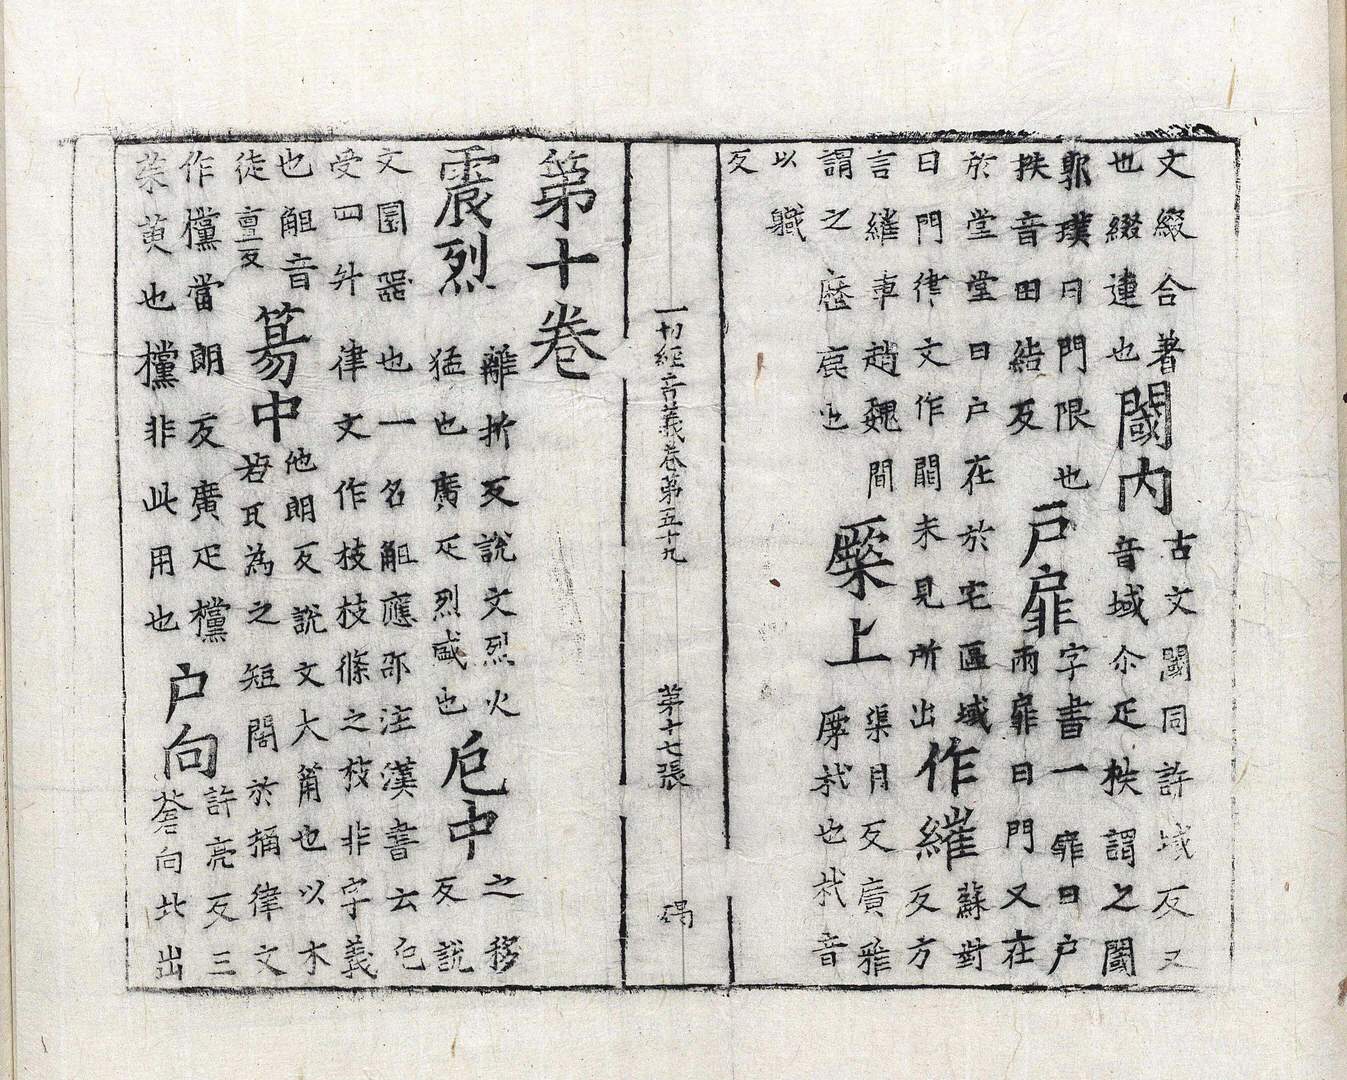 文綴合著
也綴連也
閾內
古文閾同許域反又
音域尒疋柣謂之閾
郭璞曰門限也
柣音田結反
戶扉
字書一扉曰戶
兩扉曰門又在
於堂堂曰戶在於宅區域
曰門律文作閞未見所出
作繀
蘇對
反方
言繀車趙魏間
謂之歷鹿也
橜上
渠月反廣雅
橜杙也杙音
以職
反
一切經音義卷第五十九
第十七張
碣
第十卷
震烈
離折反說文烈火
猛也廣疋烈盛也
巵中
之移
反說
文圓器也一名觛應邵注漢書云巵
受四升律文作枝枝條之枝非字義
也觛音
徒亶反
簜中
他朗反說文大筩也以木
若瓦為之短闊於桶律文
作欓當朗反廣疋欓
茱萸也欓非此用也
戶向
許亮反三
蒼向北出